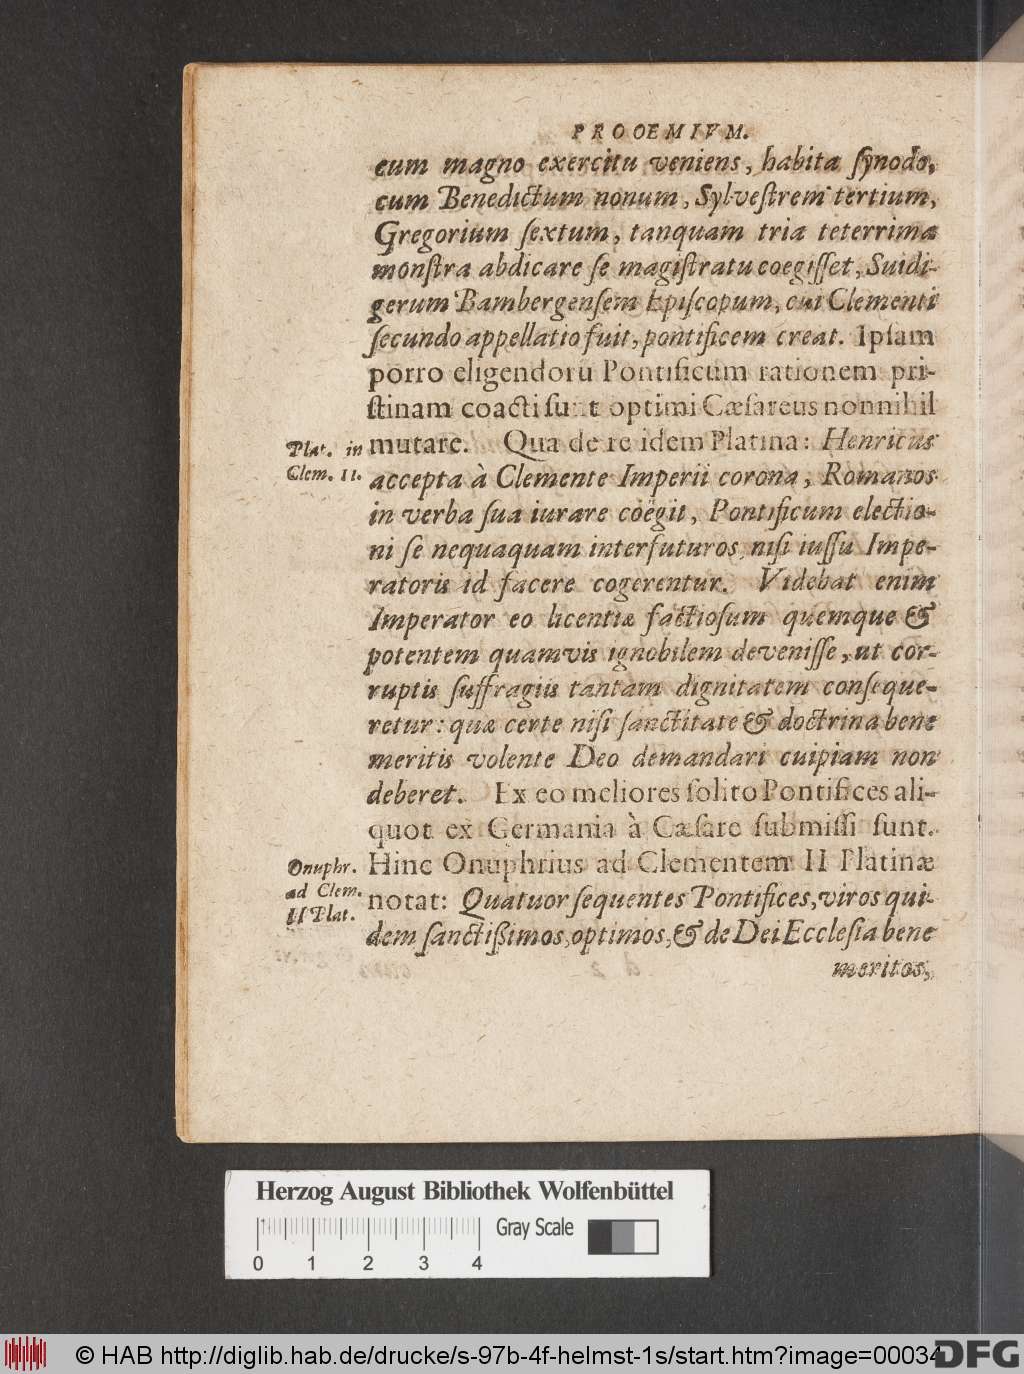 PROOEMIVM.
eum magno exercitu veniens, habita ſynodo,
cum Benedictum nonum, Sylveſtrem tertium,
Gregorium ſextum, tanquam tria teterrima
monſtra abdicare ſe magiſtratu coegiſſet, Suidi-
gerum Bambergenſem Epiſcopum, cui Clementi
ſecundo appellatio fuit, pontificem creat. Ipſam
porro eligendorū Pontificum rationem pri-
ſtinam coacti ſunt optimi Cæſareus nonnihil
Plat. in
Clem. II.
mutare. Qua de re idem Platina: Henricus
accepta à Clemente Imperii corona, Romanos
in verba ſua iurare coëgit, Pontificum electio-
ni ſe nequaquam interfuturos, niſi iuſſu Impe-
ratoris id facere cogerentur. Videbat enim
Imperator eo licentiæ factioſum quemque &
potentem quamvis ignobilem deveniſſe, ut cor-
ruptis ſuffragiis tantam dignitatem conſeque-
retur: quæ certe niſi ſanctitate & doctrina bene
meritis volente Deo demandari cuipiam non
deberet. Ex eo meliores ſolito Pontifices ali-
quot ex Germania à Cæſare ſubmiſſi ſunt.
Onuphr.
ad Clem.
II Plat.
Hinc Onuphrius ad Clementem II Platinæ
notat: Quatuor ſequentes Pontifices, viros qui-
dem ſanctißimos, optimos, & de Dei Eccleſia bene
meritos,
Herzog August Bibliothek Wolfenbüttel
Gray Scale
0 1 2 3 4
© HAB http://diglib.hab.de/drucke/s-97b-4f-helmst-1s/start.htm?image=00034
DFG